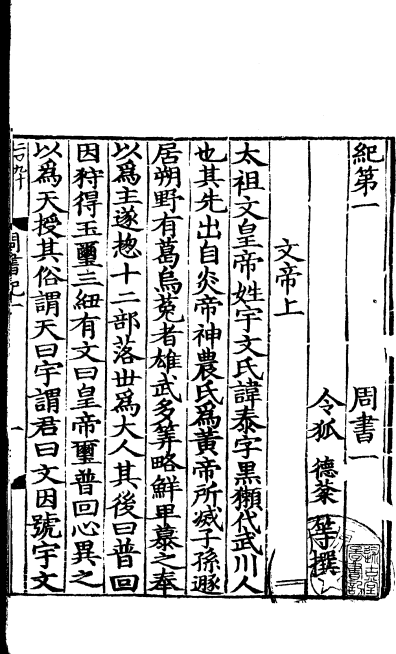 紀第一　周書一
令狐　德棻　等撰
文帝上
太祖文皇帝姓宇文氏諱泰字黑獺代武川人
也其先出自炎帝神農氏爲黄帝所滅子孫遯
居朔野有葛烏菟者雄武多筭略鮮卑慕之奉
以爲主遂揔十二部落丗爲大人其後曰普回
因狩得玉璽三紐有文曰皇帝璽普回心異之
以爲天授其俗謂天曰宇謂君曰文因號宇文
周書紀一
一